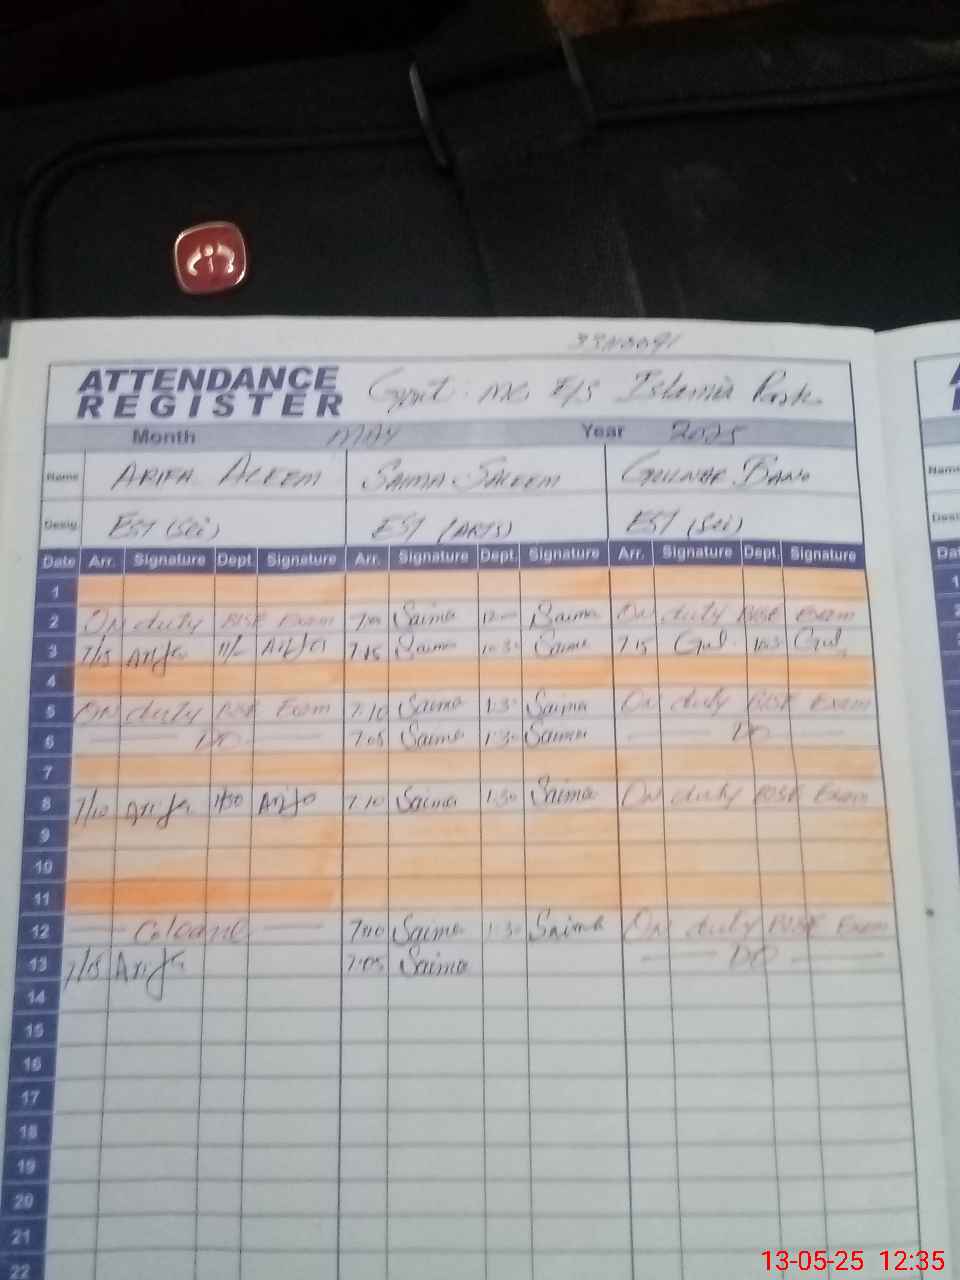 ATTENDANCE REGISTER Govt. MC E/S Islamia Park
Month MAY Year 2025
Name ARIFA ALEEM SAIMA SALEEM GULNAR BANO
Desig. EST (Sci) EST (ARTS) EST (Sci)
Date Arr. Signature Dept. Signature Arr. Signature Dept. Signature Arr. Signature Dept. Signature
1
2 On duty BISE Exam 7:00 Saima 12:00 Saima On duty BISE Exam
3 7/15 Arifa 11/- Arifa 7:15 Saima 10:30 Saima 7:15 Gul. 10:30 Gul
4
5 On duty BISE Exam 7:10 Saima 1:30 Saima On duty BISE Exam
6 DO 7:05 Saima 1:30 Saima DO
7
8 7/10 Arifa 1/30 Arifa 7:10 Saima 1:30 Saima On duty BISE Exam
9
10
11
12 7:00 Saima 1:30 Saima On duty BISE Exam
13 7/15 Arifa 7:05 Saima DO
14
15
16
17
18
19
20
21
22
Name
Desig
Dat
13-05-25 12:35